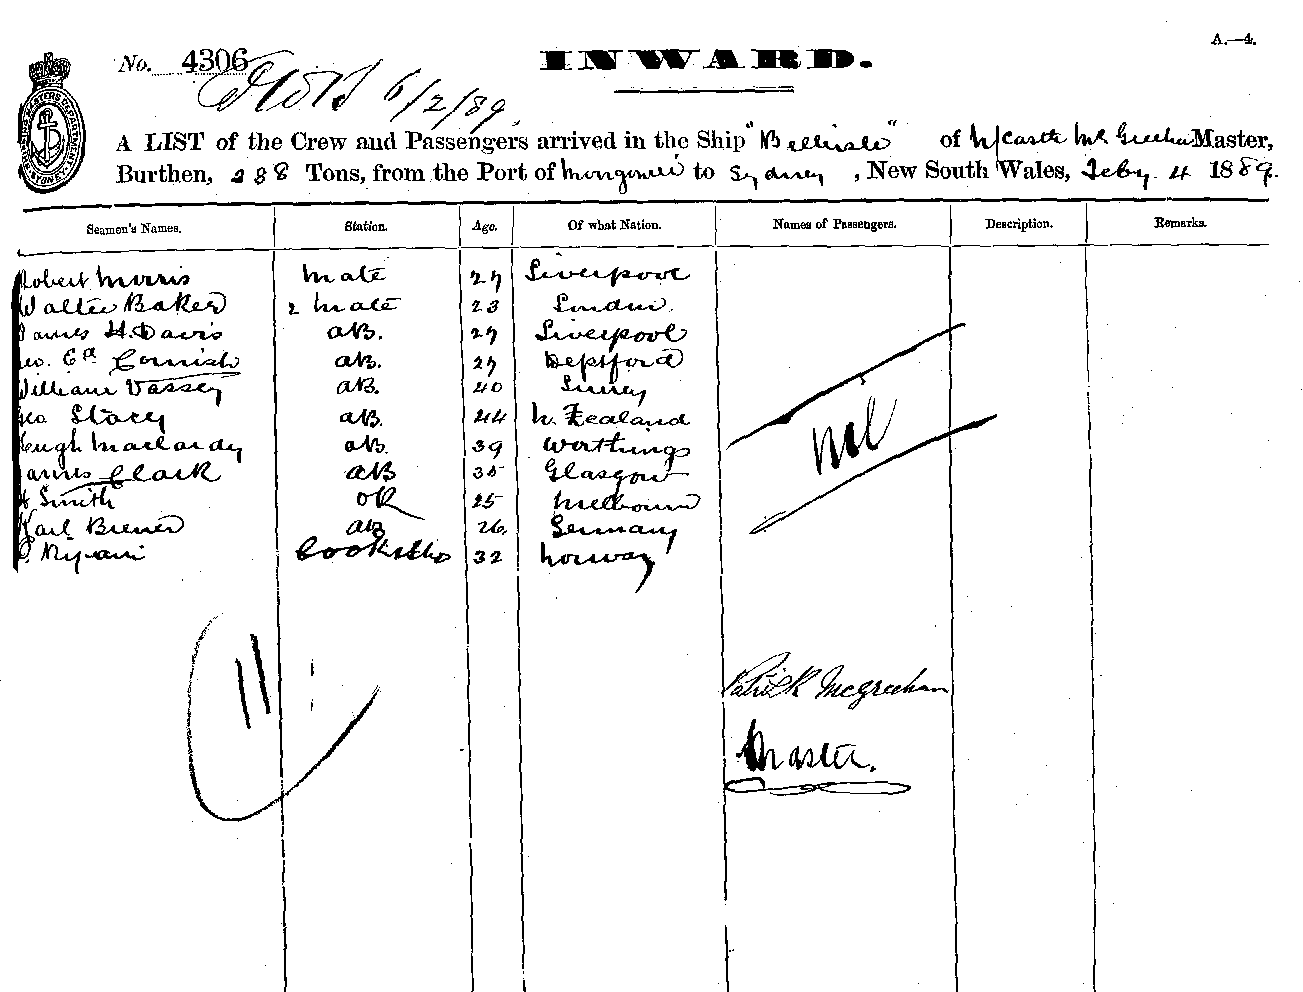 A.—4.
No. 4306 INWARD.
6/2/89
A LIST of the Crew and Passengers arrived in the Ship "Bellisle" of N/Castle McGreehan Master,
Burthen, 288 Tons, from the Port of Mongonui to Sydney, New South Wales, Feby. 4 1889.
Seamen's Names. Station. Age. Of what Nation. Names of Passengers. Description. Remarks.
Robert Morris Mate 27 Liverpool
Walter Baker 2 Mate 23 London.
James H. Davis AB. 27 Liverpool
Geo. Ed Cornish AB. 27 Deptford
William Vassey AB. 40 Surrey
Geo Stacy AB. 44 N. Zealand
Hugh AB. 39 Worthings
James Clark AB 35 Glasgow
H Smith OR 25 Melbourne
Karl AB 26. Germany
32 Norway
Nil
11
Patrick McGreehan
Master.